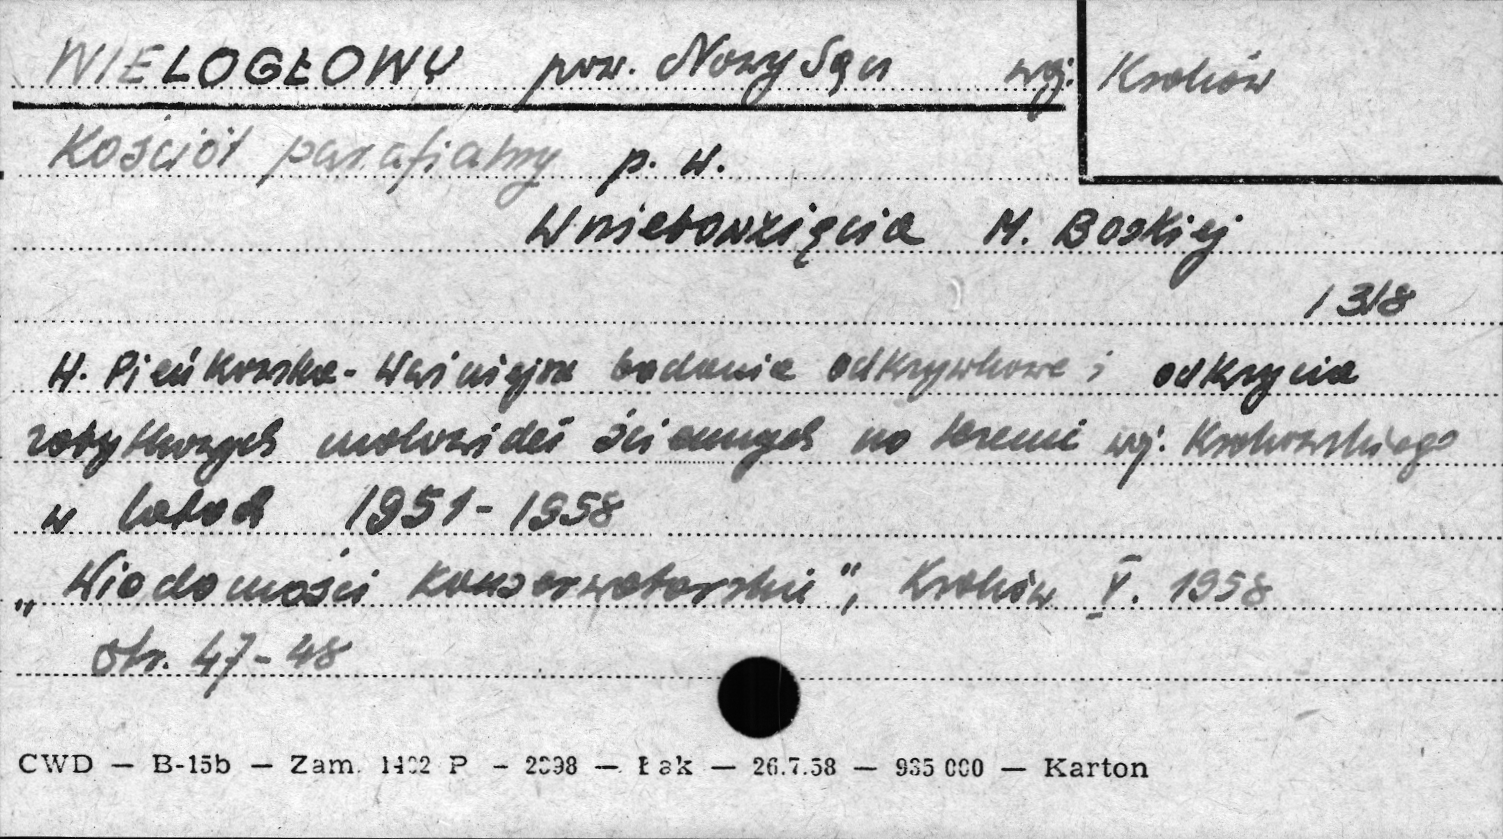 WIELOGŁOWY pow. Nowy Sącz woj. Kraków
Kościół parafialny p. w.
Wniebowzięcia M. Boskiej
1318
H. Pieńkowska - Ważniejsze badania odkrywkowe i odkrycia
zabytkowych malowideł ściennych na terenie woj. Krakowskiego
w latach 1951-1958
„Wiadomości konserwatorskie", Kraków V. 1958
str. 47-48
CWD — B-15b — Zam. 1402 P — 2398 — Łak — 26.7.58 — 935 000 — Karton